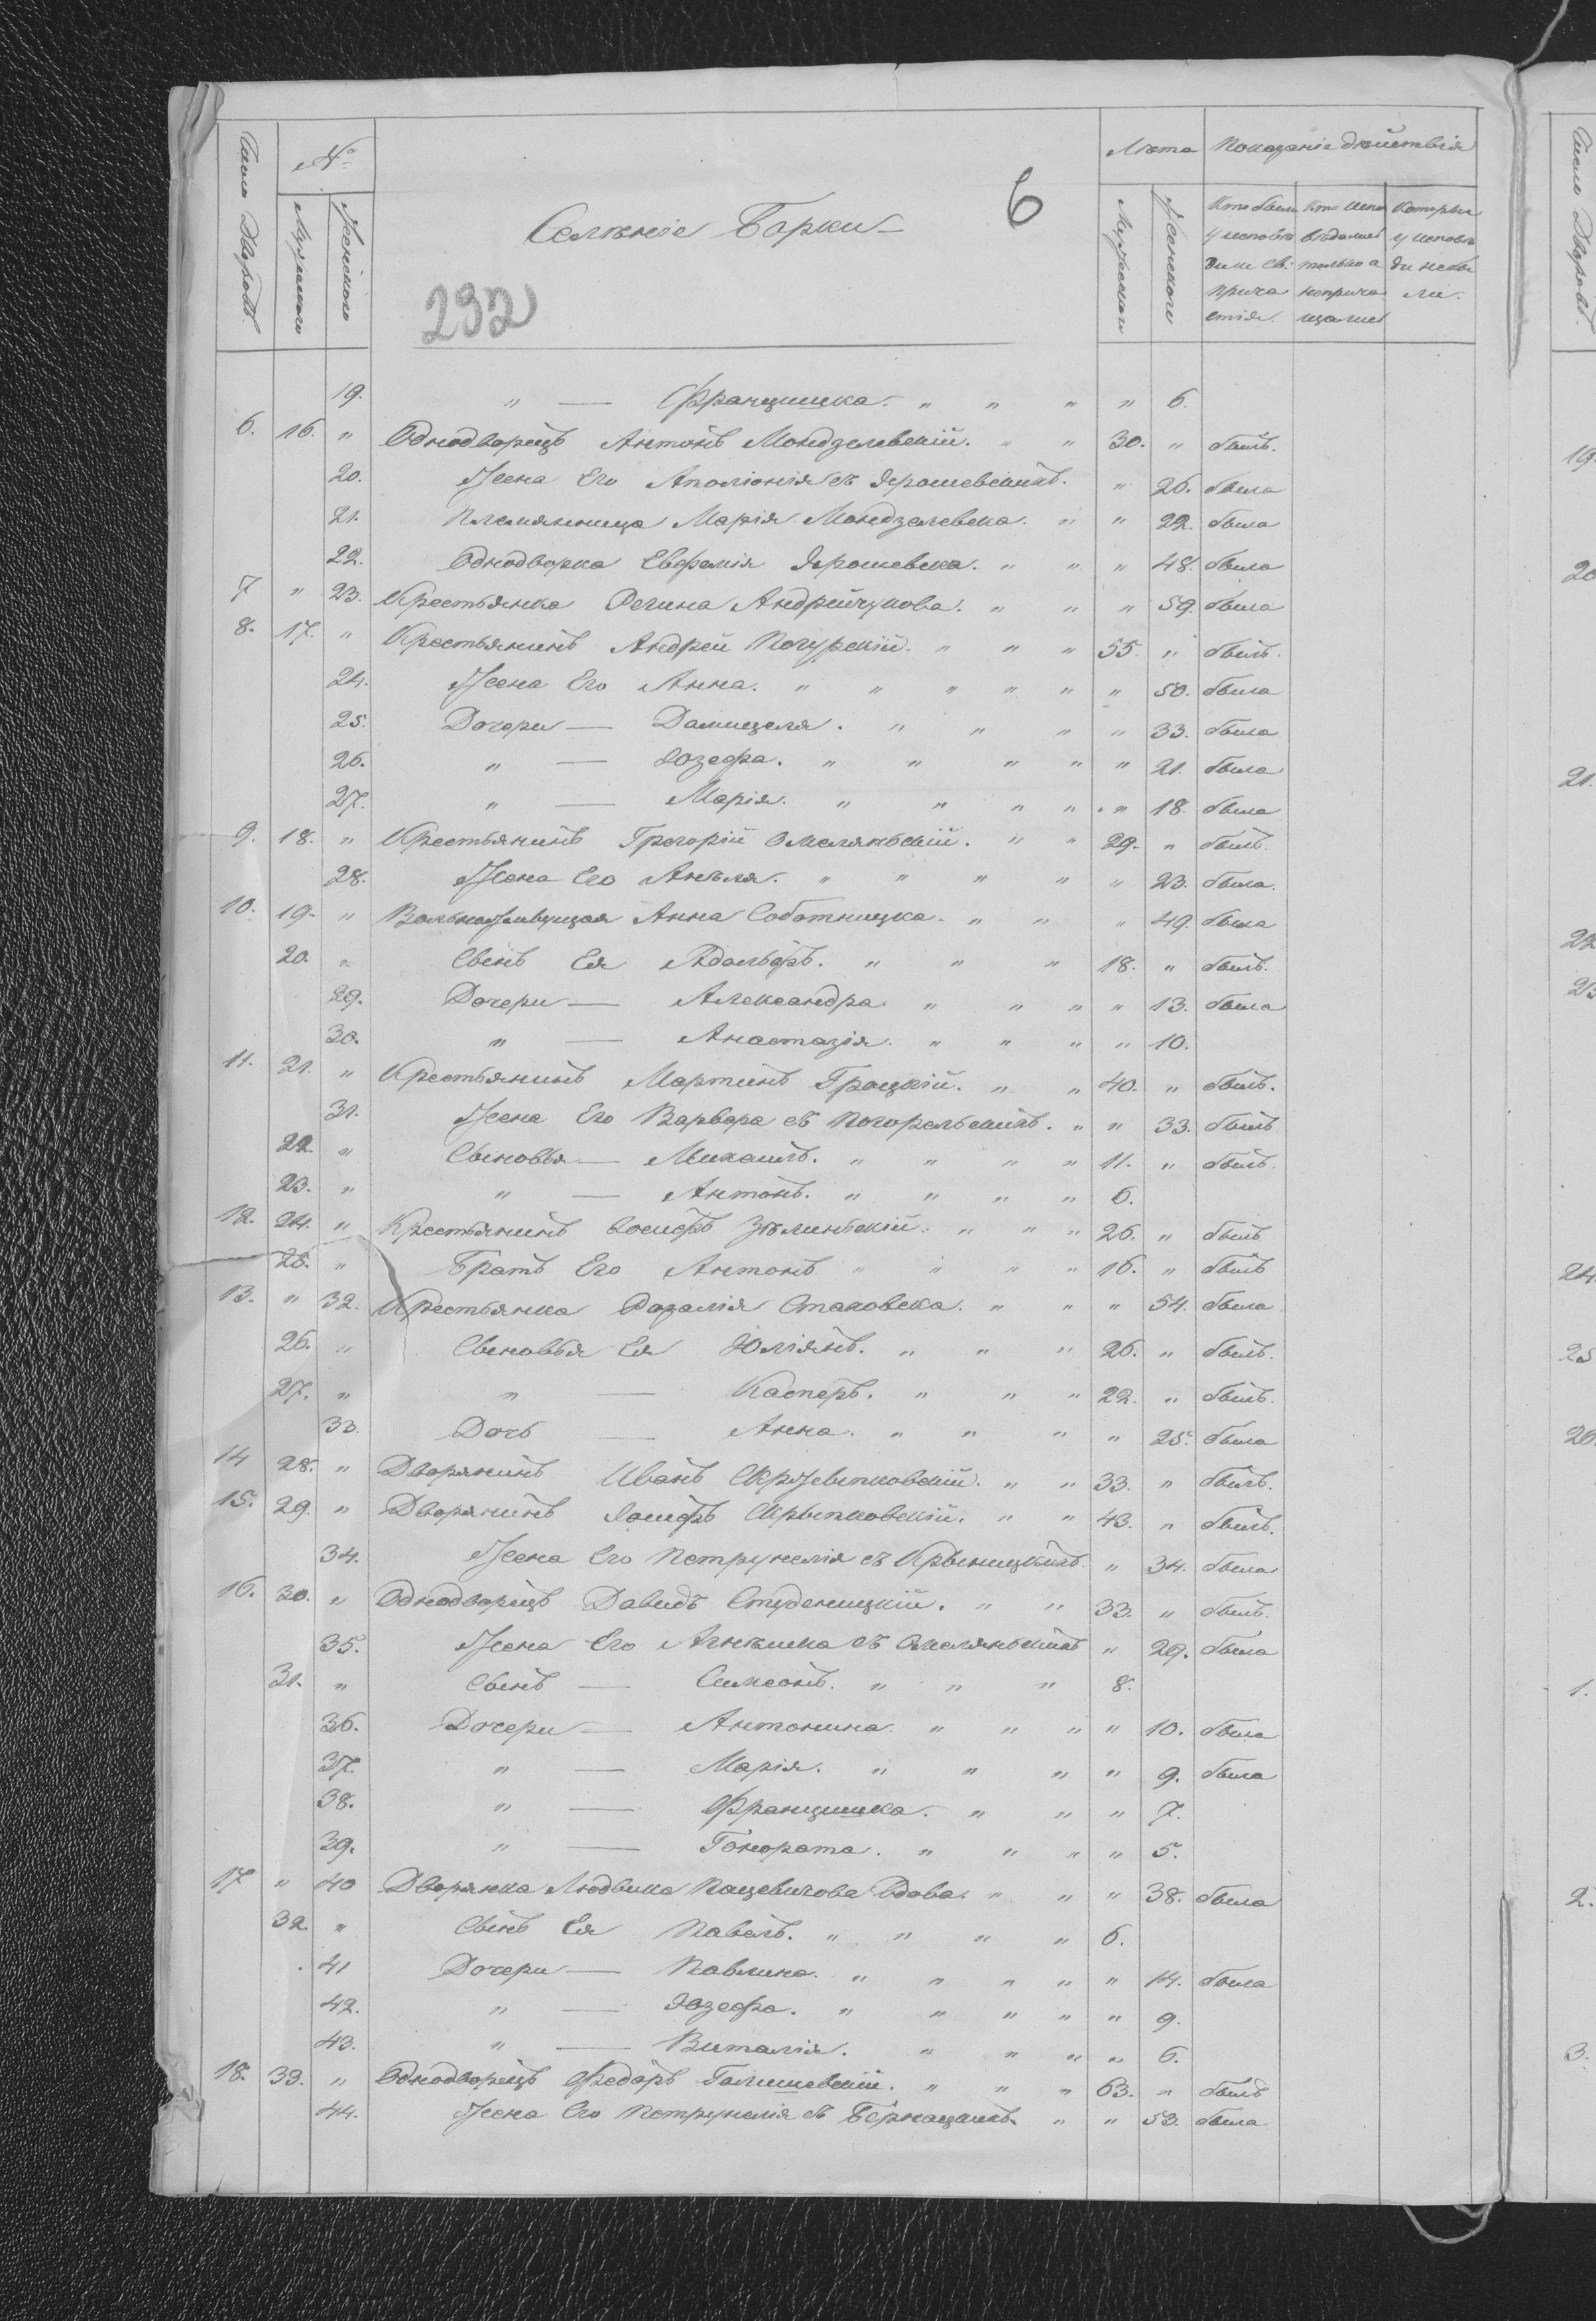 Число Дворовъ. № Лѣта Показаніе дѣйствія
Мужескаго Женскаго Селѣніе Борки 6 Мужескаго Женскаго Кто были у исповѣди и св. причастія. Кто исповѣдался только а непричащался Которые у исповѣди небыли.
232
19. " — Францишка. " " " " 6.
6. 16. " Однодворецъ Антонъ Мондзелевскій. " " 30. " былъ.
20. Жена Его Аполіонія съ Ярошевскихъ. " 26. была
21. Племянница Марія Мондзелевска. " " 22. была
22. Однодворка Евфемія Ярошевска. " " " 48. была
7 " 23. Крестьянка Регина Андрейчукова. " " " 59. была
8. 17. " Крестьянинъ Андрей Погурскій. " " " 55. " былъ.
24. Жена Его Анна. " " " " " " 50. была
25. Дочери — Домицеля. " " " " 33. была
26. " — Юзефа. " " " " " 21. была
27. " — Марія. " " " " " 18. была
9. 18. " Крестьянинъ Григорій Омеляньскій. " " 29. " былъ.
28. Жена Его Анѣля. " " " " " 23. была.
10. 19. " Вольноживущая Анна Соботницка. " " " 49. была
20. " Сынъ Ея Адольфъ. " " " 18. " былъ.
29. Дочери — Александра. " " " " 13. была
30. " — Анастазія. " " " " 10.
11. 21. " Крестьянинъ Мартинъ Гроцкій. " " 40. " былъ.
31. Жена Его Варвара съ Погорельскихъ. " " 33. былъ
22. " Сыновья — Михаилъ. " " " " 11. " былъ.
23. " " — Антонъ. " " " " 6.
12. 24. " Крестьянинъ Іосифъ Зѣлиньскій. " " " 26. " былъ
25. " Братъ Его Антонъ " " " " 16. " былъ
13. " 32. Крестьянка Розалія Стаховска. " " " 54. была
26. " Сыновья Ея Юліянъ. " " " 26. " былъ.
27. " " — Касперъ. " " " 22. " былъ.
33. Дочь — Анна. " " " " 25. была
14 28. " Дворянинъ Иванъ Скржепковскій. " " 33. " былъ.
15. 29. " Дворянинъ Іосифъ Скрыпковскій. " " 43. " былъ.
34. Жена Его Петрунелія съ Крыницкихъ. " 34. была
16. 30. " Однодворецъ Давидъ Студеницкій. " " 33. " былъ.
35. Жена Его Агнѣшка съ Омеляньскихъ " 29. была
31. " Сынъ — Симеонъ. " " " 8.
36. Дочери — Антонина. " " " " 10. была
37. " — Марія. " " " " 9. была
38. " — Францишка. " " " 7.
39. " — Гонората. " " " " 5.
17 " 40 Дворянка Людвика Пацевичова Вдова. " " " 38. была
32. " Сынъ Ея Павелъ. " " " " 6.
41 Дочери — Павлина. " " " " " 14. была
42. " — Юзефа. " " " " " 9.
43. " — Виталія. " " " " 6.
18. 33. " Однодворецъ Федоръ Галишевскій. " " " 63. " былъ
44. Жена Его Петрунелія съ Бернацкихъ. " " 53. была
Число Дворовъ.
19.
20
21.
22
23
24.
25
26.
1.
2.
3.